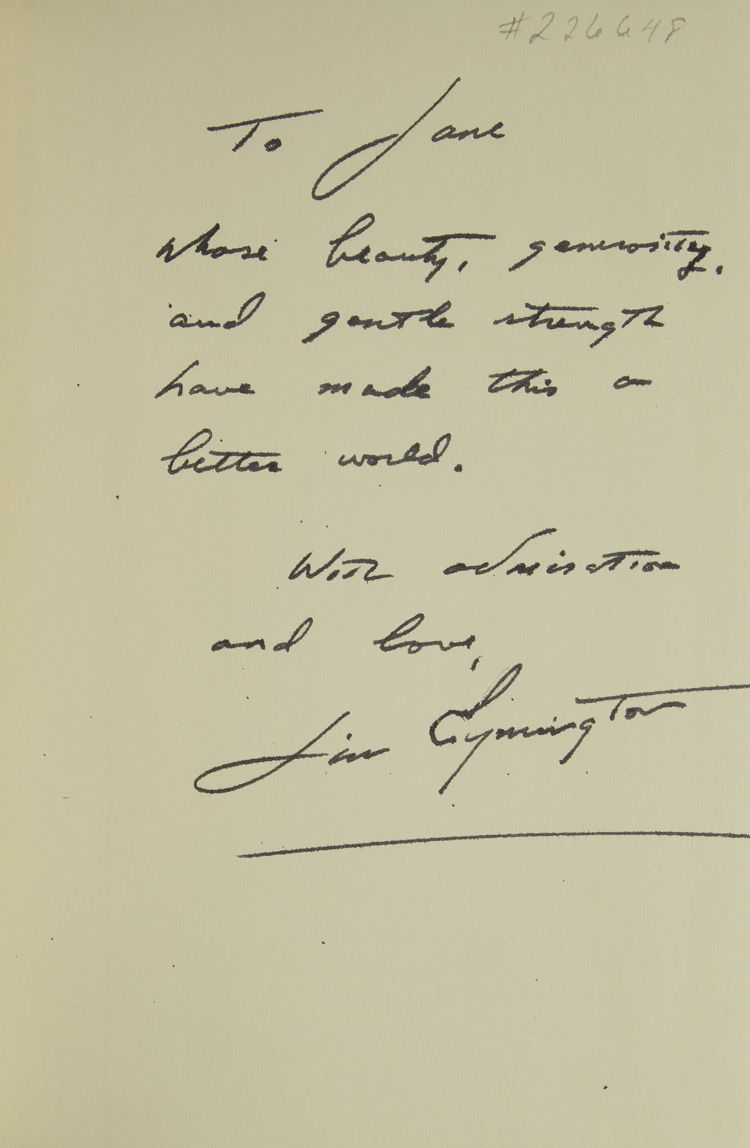 #226648
To Jane
whose beauty, generosity,
and gentle strength
have made this a
better world.
With admiration
and love,
Jim Symington